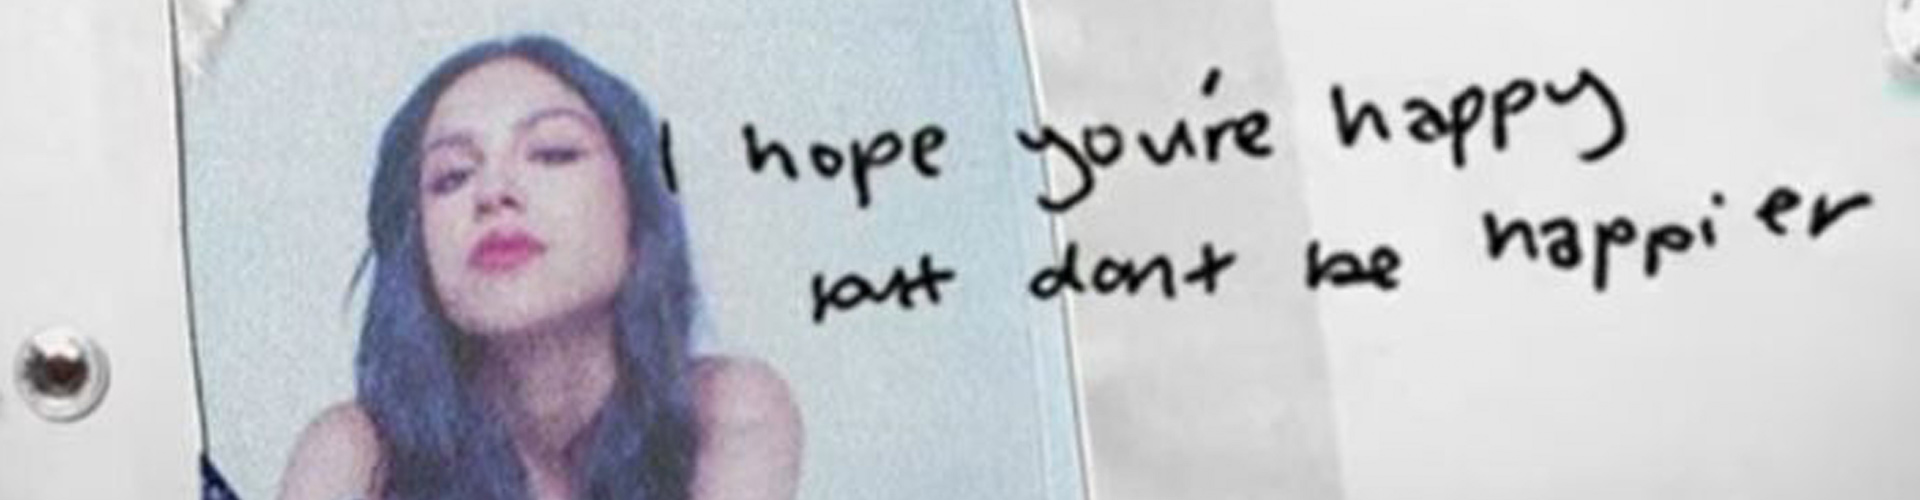 I hope you're happy
but don't be happier